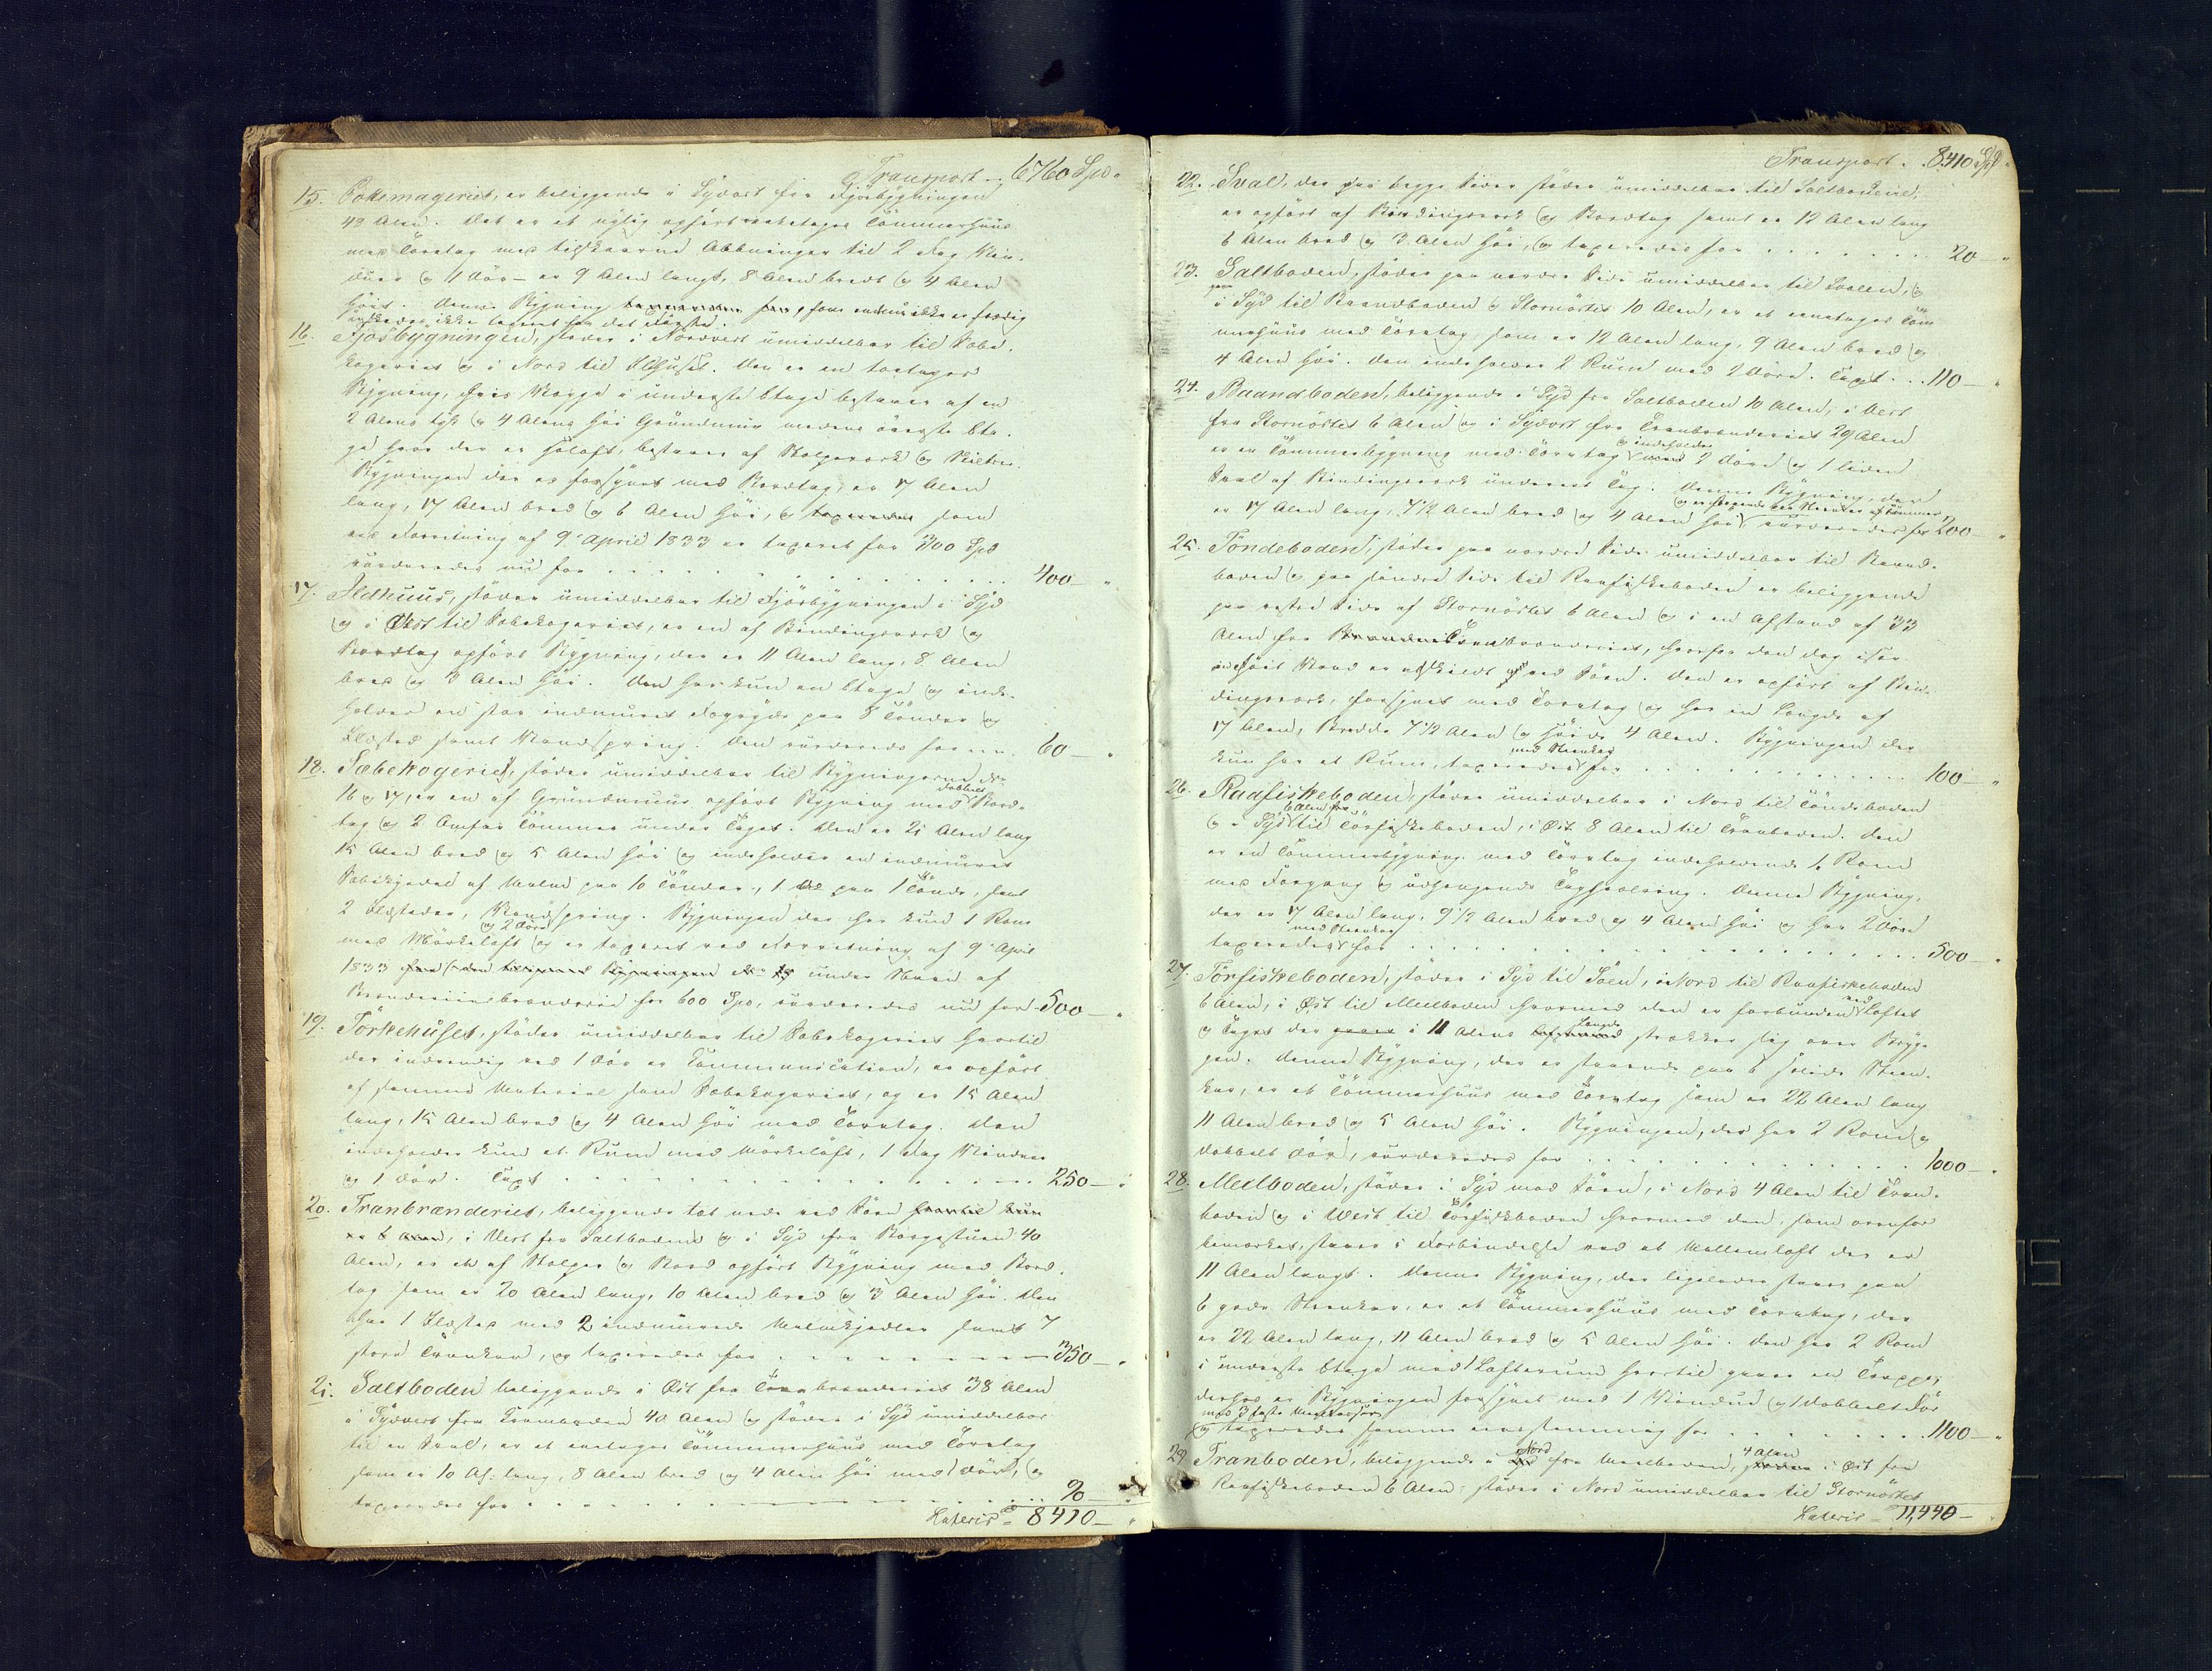 Transport - 6760 Spd "
15. Pottemageriet, er beliggende i Sydost for Fjösbygningen
42 Alen. Det er et nylig opfört eenetages Tömmerhuus
med Törvtag med tilskaarne Aabninger til 2 Fag Vin-
duer og 1 Dör – er 9 Alen langt, 8 Alen bredt og 4 Alen
höit. Denne Bygning som endnu ikke er færdig
önskedes ikke taxeret for det Förste.
16. Fjösbygningen, stöder i Nordvest umiddelbar til Sæbe-
kogeriet og i Nord til Ildhuset. Den er en toetages
Bygning, hvis Vægge i underste Etage bestaaer af en
2 Alens tyk og 4 Alens höi Grundmuur medens överste Eta-
ge hvor der er Höloft, bestaaer af Stolpeverk og
Bygningen der er forsynet med Bordtag, er 17 Alen
lang, 17 Alen bred og 6 Alen höi, og som
ved Forretning af 9de April 1833 er taxeret for 300 Spd
vurderedes nu for . . . . . . 400 – "
17. Ildhuus, stöder umiddelbar til Fjösbygningen i Syd
og i Öst til Sæbekogeriet, er en af Bindingsverk og
Bordtag opfört Bygning, der er 11 Alen lang, 8 Alen
bred og 3 Alen höi. Den har kun en Etage og inde-
holder en stor indmuret Bryggepande paa 8 Tönder og
Ildsted samt Vandspring. Den vurderedes for 60 – "
18. Sæbekogeriet, stöder umiddelbar til Bygningerne No
16 og 17, er en af Grundmuur opfört Bygning med dobbelt Bord-
tag og 2 Omfar Tömmer under Taget. Den er 21 Alen lang
15 Alen bred og 5 Alen höi og indeholder en indmuret
Sæbekjedel af Malm paa 10 Tönder, 1 do paa 1 Tönde, samt
2 Ildsteder, Vandspring. Bygningen der har kun 1 Rum
med Mörkeloft og 2 Döre og er taxeret ved Forretning af 9de April
1833 under Navn af
Brændeviinsbrænderie for 600 Spd, vurderedes nu for 500 – "
19. Törkehuset, stöder umiddelbar til Sæbekogeriet hvortil
der indvendig ved 1 Dör er Communication, er opfört
af samme Materiel som Sæbekogeriet, og er 15 Alen
lang, 15 Alen bred og 4 Alen höi med Törvtag. Den
indeholder kun et Rum med Mörkeloft, 1 Fag Vinduer
og 1 Dör. Taxt . . . . . . 250 – "
20. Tranbrænderiet, beliggende tæt nede ved Söen
i Vest fra Saltboden og i Syd fra Borgestuen 40
Alen, er en af Stolper og Bord opfört Bygning med Bord-
tag som er 20 Alen lang, 10 Alen bred og 3 Alen höi. Den
har 1 Ildsted med 2 indmurede Malmkjedler samt 7
store Trankar, og taxeredes for . . . . . . 350 – "
21. Saltboden beliggende i Öst fra Tranbrænderiet 38 Alen
i Sydvest fra Kramboden 40 Alen og stöder i Syd umiddelbar
til en Sval, er et eenetages Tömmerhuus med Törvtag
som er 10 Al: lang, 8 Alen bred og 4 Alen höi med 1 Dör, og
taxeredes for . . . . . . 90 "
Lateris – 8410 – "
Transport . 8410 Spd "
22. Sval, der paa begge Sider stöder umiddelbar til Saltboderne,
er opfört af Bindingsverk og Bordtag samt er 12 Alen lang
6 Alen bred og 3 Alen höi, og taxeredes for . . . . . . 20 – "
23. Saltboden, stöder paa nordre Side umiddelbar til Svalen, og
i Syd til Baandboden og Stornöstet 10 Alen, er et eenetages Töm-
merhuus med Törvtag som er 12 Alen lang, 9 Alen bred og
4 Alen höi. Den indeholder 2 Rum med 2 Döre. Taxt . . . 110 – "
24. Baandboden, beliggende i Syd fra Saltboden 10 Alen, i Vest
fra Stornöstet 6 Alen og i Sydost fra Tranbrænderiet 29 Alen
er en Tömmerbygning med Törvtag og indeholder 2 Döre og 1 liden
Sval af Bindingsverk under eet Tag. Denne Bygning, der
er 17 Alen lang, 7 1/2 Alen bred og 4 Alen höi og er staaende paa Steenkar af Tömmer, vurderedes for 200 – "
25. Töndeboden, stöder paa nordre Side umiddelbar til Baand-
boden og paa söndre Side til Raafiskeboden er beliggende
paa vestre Side af Stornöstet 6 Alen og i en Afstand af 33
Alen fra Tranbrænderiet, hvorfra den dog især
ved höit Vand er adskildt ved Söen. Den er opfört af Bin-
dingsverk, forsynet med Törvtag og har en Længde af
17 Alen, Bredde 7 1/2 Alen og Höide 4 Alen. Bygningen der
kun har et Rum, taxeredes med Steenkar for . . . . . . 100 – "
26. Raafiskeboden, stöder umiddelbar i Nord til Töndeboden
og i Syd 6 Alen fra til Törfiskeboden, i Öst 8 Alen til Tranboden. Den
er en Tömmerbygning med Törvtag indeholdende 1 Rum
med Forgang og udhængende Tag. Denne Bygning,
der er 17 Alen lang, 9 1/2 Alen bred og 4 Alen höi og har 2 Döre
taxeredes med Steenkar for . . . . . . 500 – "
27. Törfiskeboden, stöder i Syd til Söen, i Nord til Raafiskeboden
6 Alen, i Öst til Meelboden hvormed den er forbunden ved Loftet
og Taget der i 11 Alens Længde strækker sig over Bryg-
gen. Denne Bygning, der er staaende paa 6 solide Steen-
kar, er et Tömmerhuus med Törvtag som er 22 Alen lang
11 Alen bred og 5 Alen höi. Bygningen, der har 2 Rum og
dobbelt Dör, vurderedes for . . . . . . 1000 – "
28. Meelboden, stöder i Syd mod Söen, i Nord 4 Alen til Tran-
boden og i West til Törfiskeboden hvormed den, som ovenfor
bemærket, staaer i Forbindelse ved et Mellemloft der er
11 Alen langt. Denne Bygning, der ligeledes staaer paa
6 gode Steenkar, er et Tömmerhuus med Törvtag, der
er 22 Alen lang, 11 Alen bred og 5 Alen höi. Den har 2 Rum
i underste Etage med Lofterum hvortil gaaer en Trappe,
derhos er Bygningen forsynet med 1 Vindue og 1 dobbelt Dör
med 3 faste
og taxeredes for . . . . . . 1100 – "
29. Tranboden, beliggende i Nord fra Meelboden, 4 Alen i Öst fra
Raafiskeboden 6 Alen, stöder i Nord umiddelbar til Stornöstet
Lateris – 11,440 –